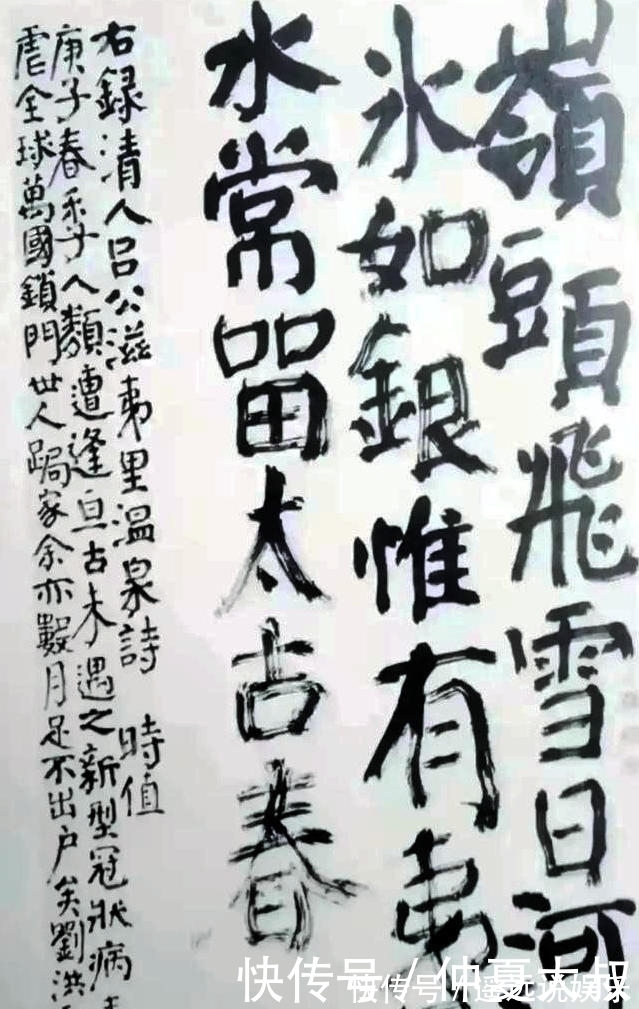 嶺頭飛雪日河
氷如銀惟有夷
水常留太古春
右録清人吕公滋夷里温泉詩 時值
庚子春季人類遭逢亘古未遇之新型冠狀病毒
虐全球萬國鎖門世人跼家余亦數月足不出户矣劉洪
快传号 / 仲夏大叔
快传号 / 遥远说娱乐